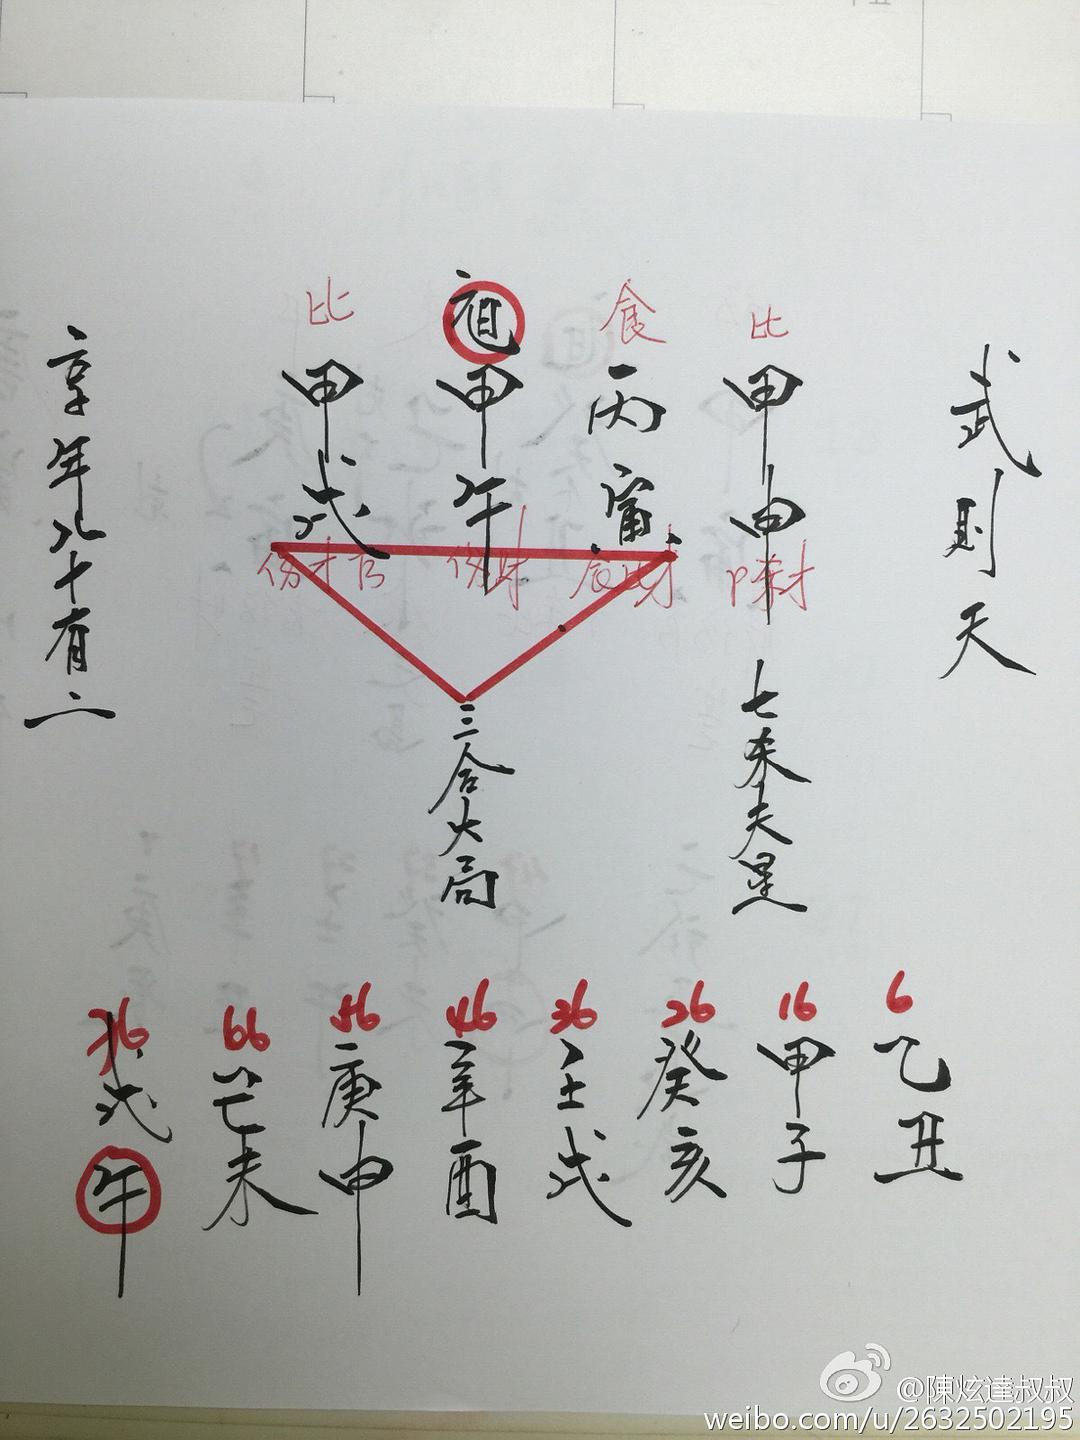 武則天
比 食 比
甲 丙 甲 甲
申 寅 午 戌
七杀夫星
三合火局
享年八十有二
6 16 26 36 46 56 66 76
乙丑
甲子
癸亥
壬戌
辛酉
庚申
未
午
@陳炫達叔叔
weibo.com/u/2632502195